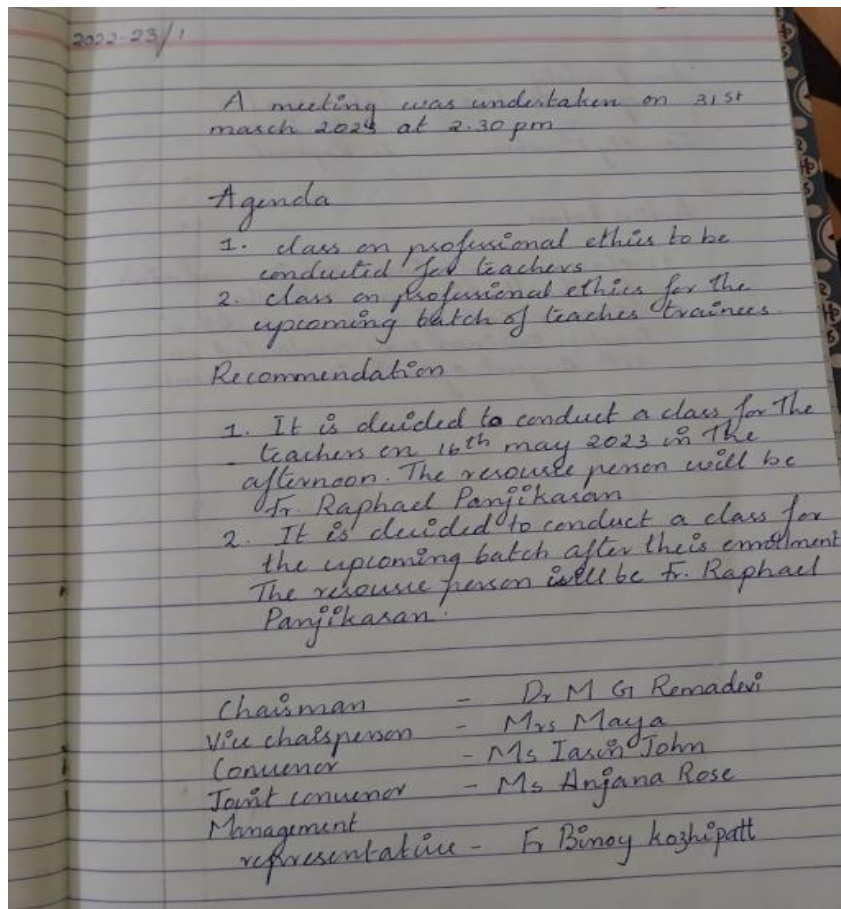 2022-23/1
A meeting was undertaken on 31st
march 2023 at 2.30 pm
Agenda
1. class on professional ethics to be
conducted for teachers
2. class on professional ethics for the
upcoming batch of teacher trainees.
Recommendation
1. It is decided to conduct a class for the
teachers on 16th may 2023 in the
afternoon. The resource person will be
Fr. Raphael Panjikaran
2. It is decided to conduct a class for
the upcoming batch after their enrolment
The resource person will be Fr. Raphael
Panjikaran.
Chairman - Dr M G Remadevi
Vice chairperson - Mrs Maya
Convenor - Ms John
Joint convenor - Ms Anjana Rose
Management
representative - Fr Binoy kozhipatt